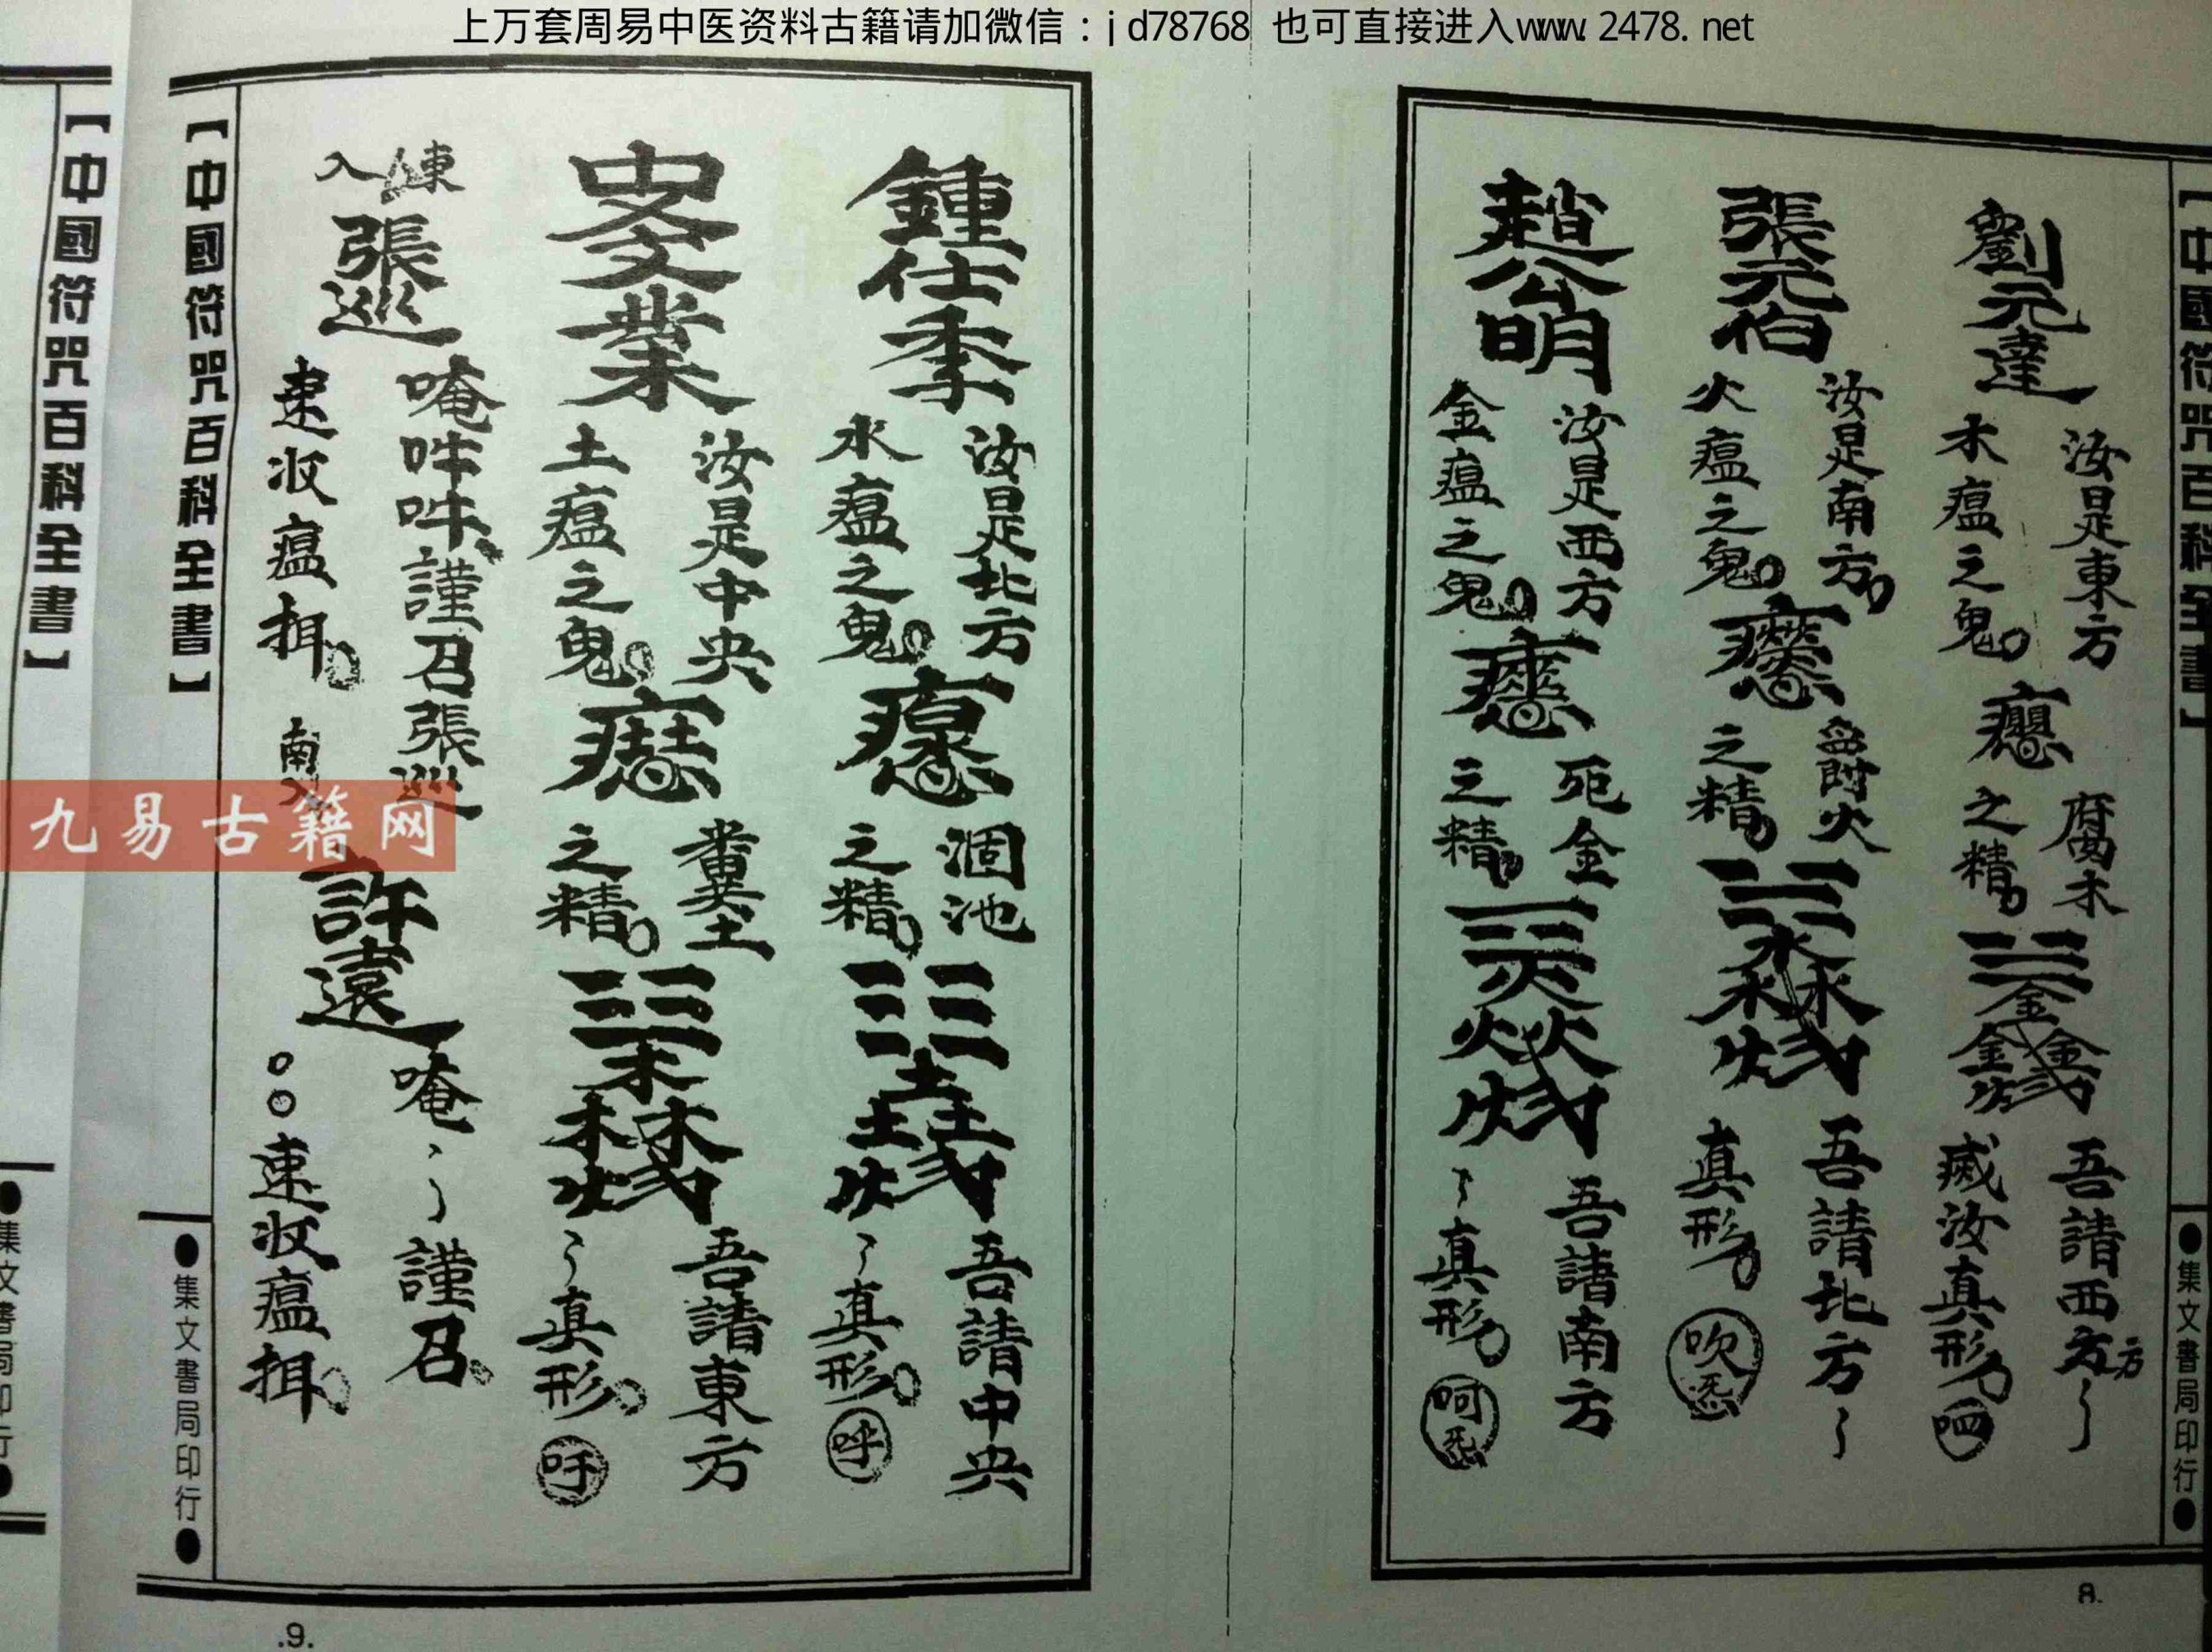 上万套周易中医资料古籍请加微信：jd78768 也可直接进入www.2478.net
【中國符咒百科全書】
劉元達
汝是東方
木瘟之鬼
腐木
之精
吾請西方
滅汝真形
呬
張元伯
汝是南方
火瘟之鬼
火
之精
吾請北方
真形
吹
趙公明
汝是西方
金瘟之鬼
死金
之精
吾請南方
真形
呵
●集文書局印行●
8.
鍾仕季
汝是北方
水瘟之鬼
涸池
之精
吾請中央
真形
呼
史文業
汝是中央
土瘟之鬼
糞土
之精
吾請東方
真形
吁
東
入
張巡
唵吽吽謹召張巡
速收瘟
南
許遠
唵謹召
速收瘟
【中國符咒百科全書】
●集文書局印行●
.9.
【中國符咒百科全書】
集文書局印行
九易古籍网